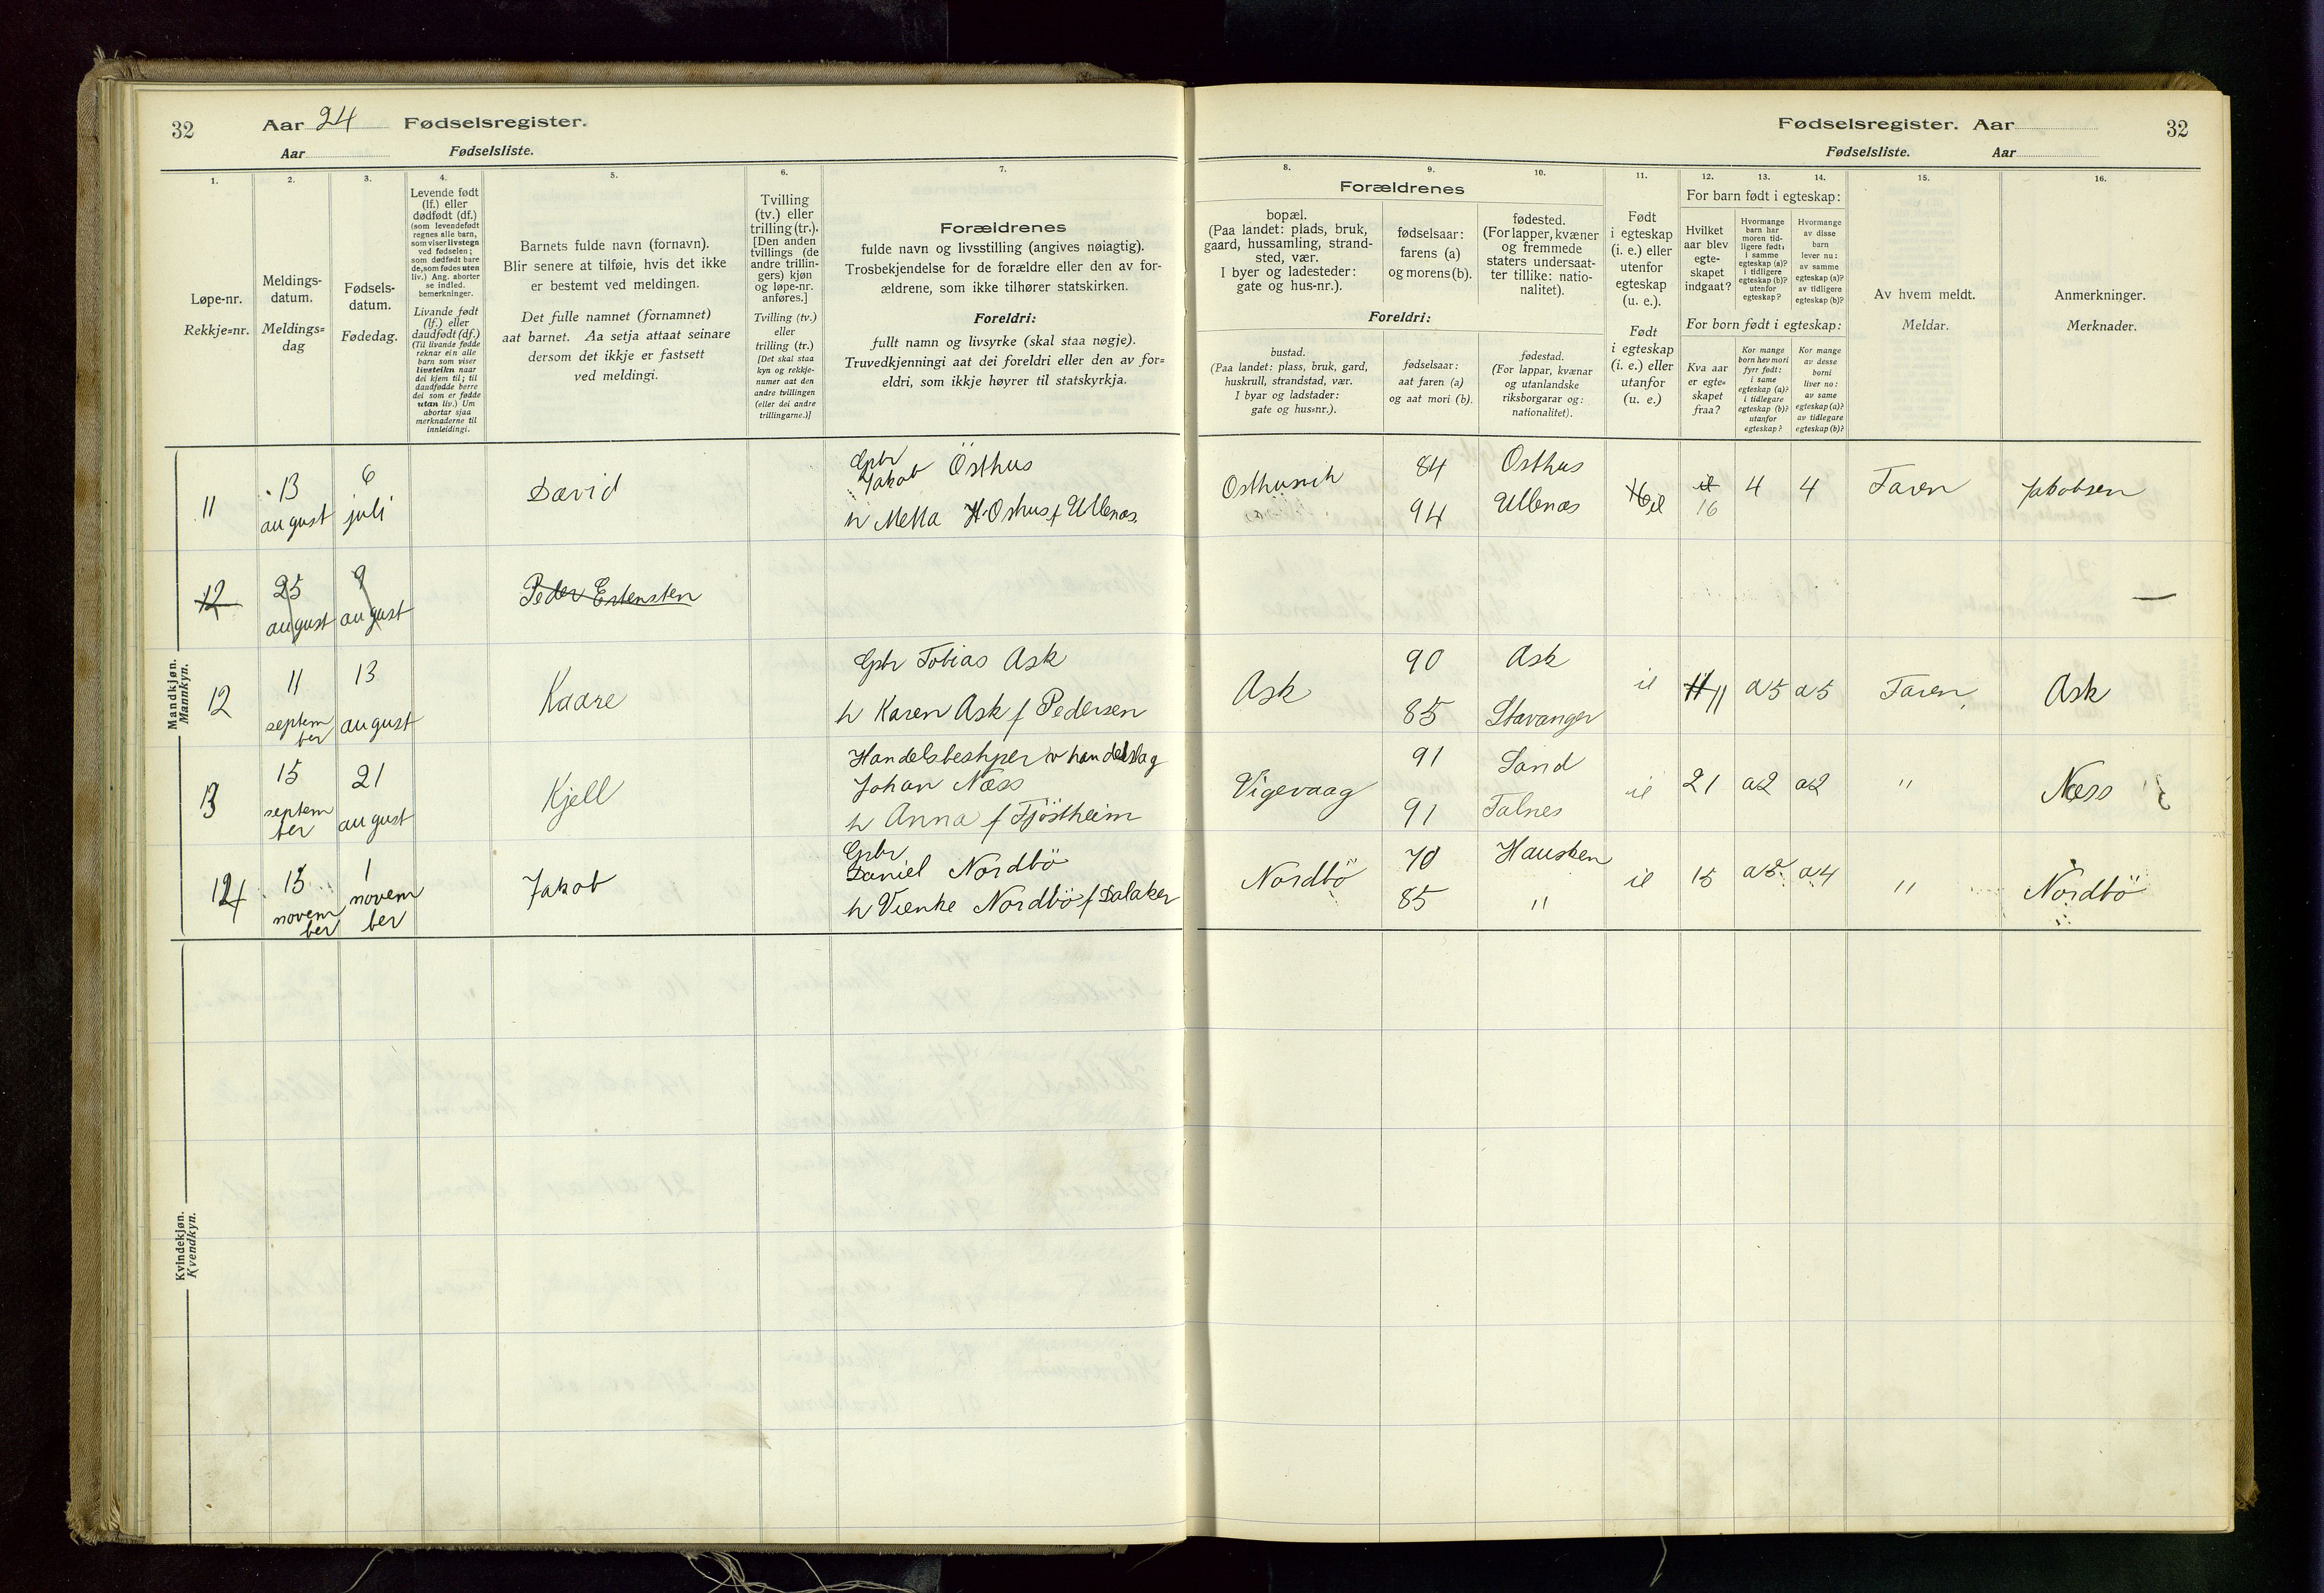 32 Aar 24 Fødselsregister.
Aar Fødselsliste.
Fødselsregister. Aar 32
Fødselsliste. Aar
1.
Løpe-nr.
Rekkje=nr.
2.
Meldings-
datum.
Meldings=
dag
3.
Fødsels-
datum.
Fødedag.
4.
Levende født
(lf.) eller
dødfødt (df.)
(som levendefødt
regnes alle barn,
som viser livstegn
ved fødselen;
som dødfødt bare
de, som fødes uten
liv.) Ang. aborter
se indled.
bemerkninger.
Livande født
(lf.) eller
daudfødt (df.)
(Til livande fødde
reknar ein alle
born som viser
livsteikn naar
dei kjem til; til
daudfødde berre
dei som er fødde
utan liv.) Um
abortar sjaa
merknaderne til
innleidingi.
5.
Barnets fulde navn (fornavn).
Blir senere at tilføie, hvis det ikke
er bestemt ved meldingen.
Det fulle namnet (fornamnet)
aat barnet. Aa setja attaat seinare
dersom det ikkje er fastsett
ved meldingi.
6.
Tvilling
(tv.) eller
trilling (tr.).
[Den anden
tvillings (de
andre trillin-
gers) kjøn
og løpe-nr.
anføres.]
Tvilling (tv.)
eller
trilling (tr.)
[Det skal staa
kyn og rekkje-
numer aat den
andre tvillingen
(eller dei andre
trillingarne.)]
7.
Forældrenes
fulde navn og livsstilling (angives nøiagtig).
Trosbekjendelse for de forældre eller den av for-
ældrene, som ikke tilhører statskirken.
Foreldri:
fullt namn og livsyrke (skal staa nøgje).
Truvedkjenningi aat dei foreldri eller den av for=
eldri, som ikkje høyrer til statskyrkja.
Forældrenes
8.
bopæl.
(Paa landet: plads, bruk,
gaard, hussamling, strand-
sted, vær.
I byer og ladesteder:
gate og hus-nr.).
Foreldri:
bustad.
(Paa landet: plass, bruk, gard,
huskrull, strandstad, vær.
I byar og ladstader:
gate og hus=nr.).
9.
fødselsaar:
farens (a)
og morens (b).
fødselsaar:
aat faren (a)
og aat mori (b).
10.
fødested.
(For lapper, kvæner
og fremmede
staters undersaat-
ter tillike: natio-
nalitet).
fødestad.
(For lappar, kvænar
og utanlandske
riksborgarar og:
nationalitet).
11.
Født
i egteskap
(i. e.) eller
utenfor
egteskap
(u. e.).
Født
i egteskap
(i. e.) eller
utanfor
(u. e.)
For barn født i egteskap:
12.
Hvilket
aar blev
egte-
skapet
indgaat?
For born født i egteskap:
Kva aar
er egte=
skapet
fraa?
13.
Hvormange
barn har
moren tid-
ligere født:
i samme
egteskap (a)?
i tidligere
egteskap (b)?
utenfor
egteskap?
Kor mange
born hev mori
fyrr født:
i same
egteskap (a)?
i tidlegare
egteskap (b)?
utanfor
egteskap?
14.
Hvormange
av disse
barn
lever nu:
av samme
egteskap (a)?
av tidligere
egteskap (b)?
Kor mange
av desse
borni
liver no:
av same
egteskap (a)?
av tidlegare
egteskap (b)?
15.
Av hvem meldt.
Meldar.
16.
Anmerkninger.
Merknader.
Mandkjøn.
Mannkyn.
11 13 august 6 juli David
Gbr Jakob Östhus
h Metta H. Oshus f Ullenæs.
84 Osthus
94 Ullenæs
il 16 4 4 Faren Jakobsen
12 25 august 9 august Peder Estensten
12 11 september 13 august Kaare
Gbr Tobias Ask
h Karen Ask f Pedersen
Ask
90 Ask
85 Stavanger
il 11 a5 a5 Faren Ask
13 15 september 21 august Kjell
Handelsbestyrer v handelslag
Johan Næss
h Anna f Tjöstheim
Vigevaag
91 Sand
91 Falnes
il 21 a2 a2 " Næss
14 15 november 1 november Jakob
Gbr
Daniel Nordbö
h Vienke Nordbö f Dalaker
Nordbö
70 Hausken
85 "
il 15 a5 a4 " Nordbö
Kvindekjøn.
Kvendkyn.